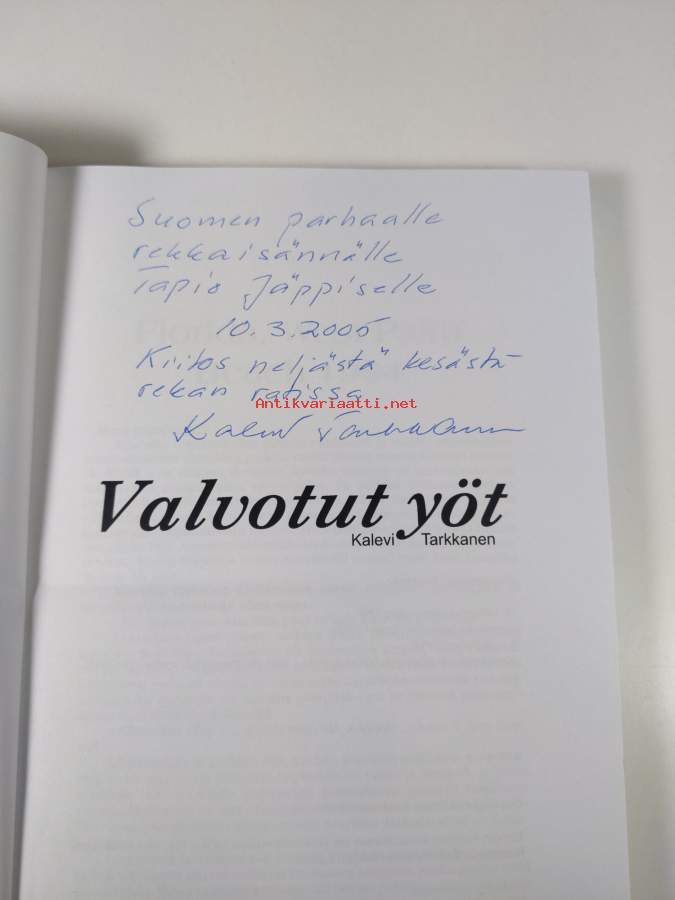 Suomen parhaalle
rekkaisännälle
Tapio Jäppiselle
10.3.2005
Kiitos neljästä kesästä
rekan ratissa
Antikvariaatti.net
Kalevi Tarkkanen
Valvotut yöt
Kalevi Tarkkanen